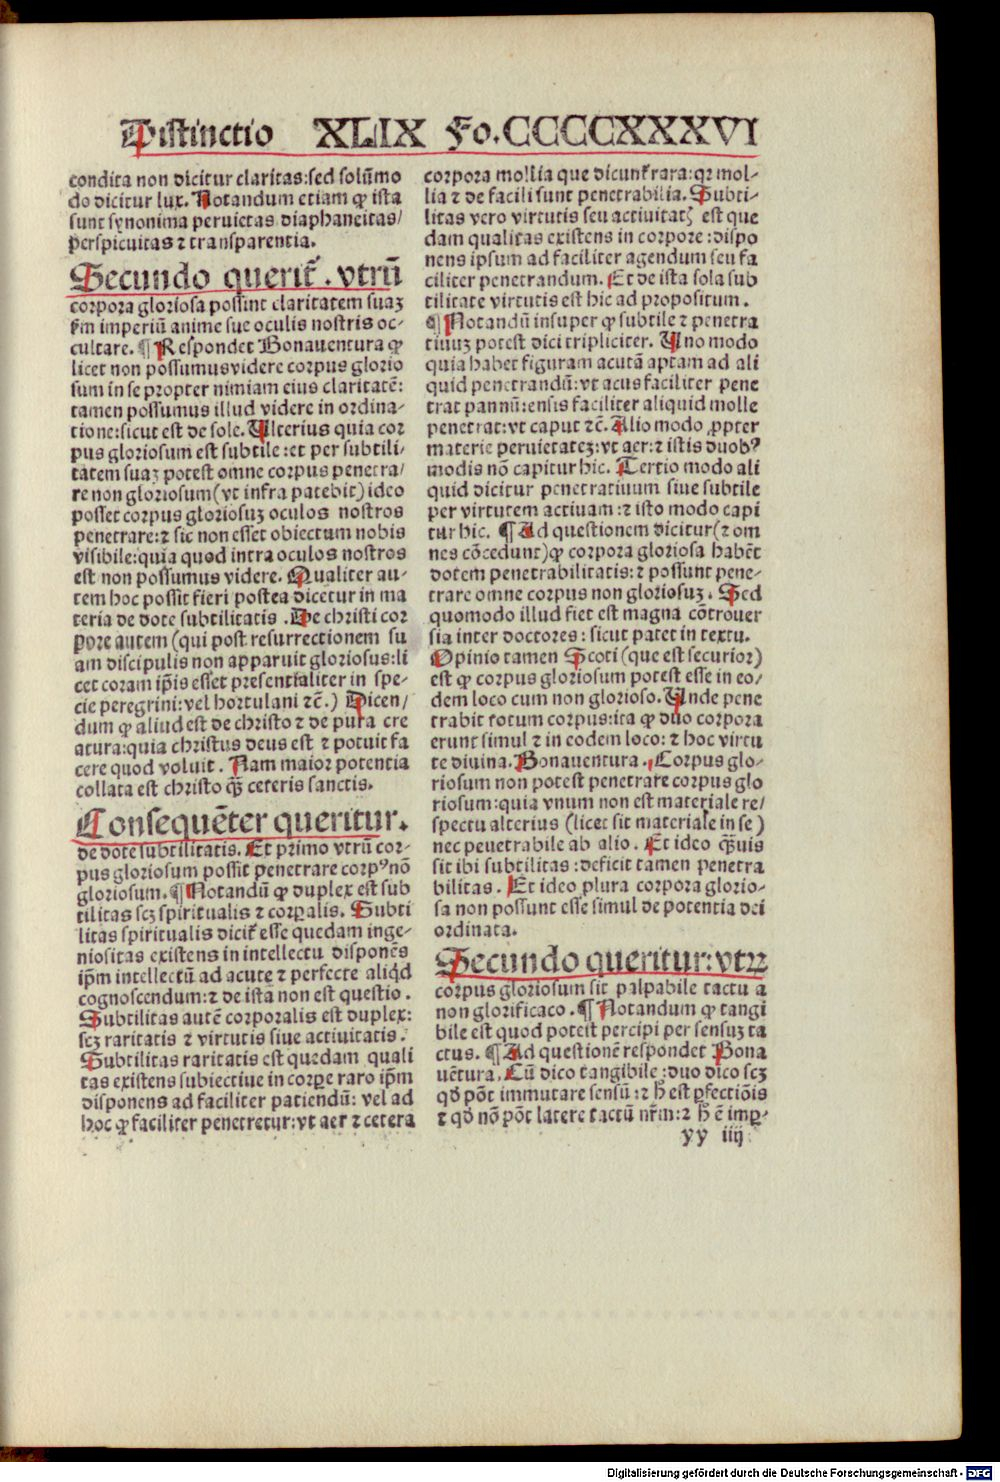 Distinctio XLIX Fo.CCCCXXXVI
condita non dicitur claritas:sed solūmo
do dicitur lux. Notandum etiam ꝙ ista
sunt synonima peruietas diaphaneitas/
perspicuitas ⁊ transparentia.
Secundo querit᷑ . vtrū
corpora gloriosa possint claritatem suaꝫ
ẜm imperiū anime sue oculis nostris oc-
cultare. ¶ Respondet Bonauentura ꝙ
licet non possumus videre corpus glorio
sum in se propter nimiam eius claritatē:
tamen possumus illud videre in ordina-
tione:sicut est de sole. Ulterius quia cor
pus gloriosum est subtile :et per subtili-
tatem suaꝫ potest omne corpus penetra/
re non gloriosum(vt infra patebit) ideo
posset corpus gloriosuꝫ oculos nostros
penetrare:⁊ sic non esset obiectum nobis
visibile:quia quod intra oculos nostros
est non possumus videre. Qualiter au-
tem hoc possit fieri postea dicetur in ma
teria de dote subtilitatis . De christi cor
pore autem (qui post resurrectionem su
am discipulis non apparuit gloriosus:li
cet coram ip̄is esset presentialiter in spe-
cie peregrini:vel hortulani ⁊c̄.) Dicen/
dum ꝙ aliud est de christo ⁊ de pura cre
atura:quia christus deus est ⁊ potuit fa
cere quod voluit . Nam maior potentia
collata est christo q̄ȝ ceteris sanctis.
Consequēter queritur.
de dote subtilitatis. Et primo vtrū cor-
pus gloriosum possit penetrare corpꝰ nō
gloriosum. ¶ Notandū ꝙ duplex est sub
tilitas scꝫ spiritualis ⁊ corꝑalis. Subti
litas spiritualis dicit᷑ esse quedam inge-
niositas existens in intellectu disponēs
ip̄m intellectū ad acute ⁊ perfecte aliqd
cognoscendum:⁊ de ista non est questio .
Subtilitas autē corporalis est duplex:
scꝫ raritatis ⁊ virtutis siue actiuitatis .
Subtilitas raritatis est quedam quali
tas existens subiectiue in corꝑe raro ip̄m
disponens ad faciliter patiendū: vel ad
hoc ꝙ faciliter penetretur:vt aer ⁊ cetera
corpora mollia que dicunt᷑ rara: qꝛ mol-
lia ⁊ de facili sunt penetrabilia. Subti-
litas vero virtutis seu actiuitatꝭ est que
dam qualitas existens in corpore :dispo
nens ipsum ad faciliter agendum seu fa
ciliter penetrandum. Et de ista sola sub
tilitate virtutis est hic ad propositum .
¶ Notandū insuper ꝙ subtile ⁊ penetra
tiuuꝫ potest dici tripliciter. Uno modo
quia habet figuram acutā aptam ad ali
quid penetrandū: vt acus faciliter pene
trat pannū:ensis faciliter aliquid molle
penetrat: vt caput ⁊c̄. Alio modo ꝓpter
materie peruietateꝫ: vt aer:⁊ istis duobꝰ
modis nō capitur hic. Tertio modo ali
quid dicitur penetratiuum siue subtile
per virtutem actiuam :⁊ isto modo capi
tur hic. ¶ Ad questionem dicitur(⁊ om
nes cōcedunt)ꝙ corpora gloriosa habēt
dotem penetrabilitatis:⁊ possunt pene-
trare omne corpus non gloriosuꝫ . Sed
quomodo illud fiet est magna cōtrouer
sia inter doctores : sicut patet in textu.
Opinio tamen Scoti (que est securior)
est ꝙ corpus gloriosum potest esse in eo/
dem loco cum non glorioso. Unde pene
trabit totum corpus:ita ꝙ duo corpora
erunt simul ⁊ in eodem loco: ⁊ hoc virtu
te diuina. Bonauentura. Corpus glo-
riosum non potest penetrare corpus glo
riosum:quia vnum non est materiale re/
spectu alterius (licet sit materiale in se )
nec peuetrabile ab alio . Et ideo q̄ȝuis
sit ibi subtilitas :deficit tamen penetra
bilitas . Et ideo plura corpora glorio-
sa non possunt esse simul de potentia dei
ordinata.
Secundo queritur:vtꝝ
corpus gloriosum sit palpabile tactu a
non glorificaco . ¶ Notandum ꝙ tangi
bile est quod potest percipi per sensuꝫ ta
ctus. ¶ Ad questionē respondet Bona
uētura. Cū dico tangibile :duo dico scꝫ
qđ pōt immutare sensū :⁊ ħ est ꝑfectiōis
⁊ qđ nō pōt latere tactū nr̄m:⁊ ħ ē imꝑ-
yy iiij
Digitalisierung gefördert durch die Deutsche Forschungsgemeinschaft - DFG